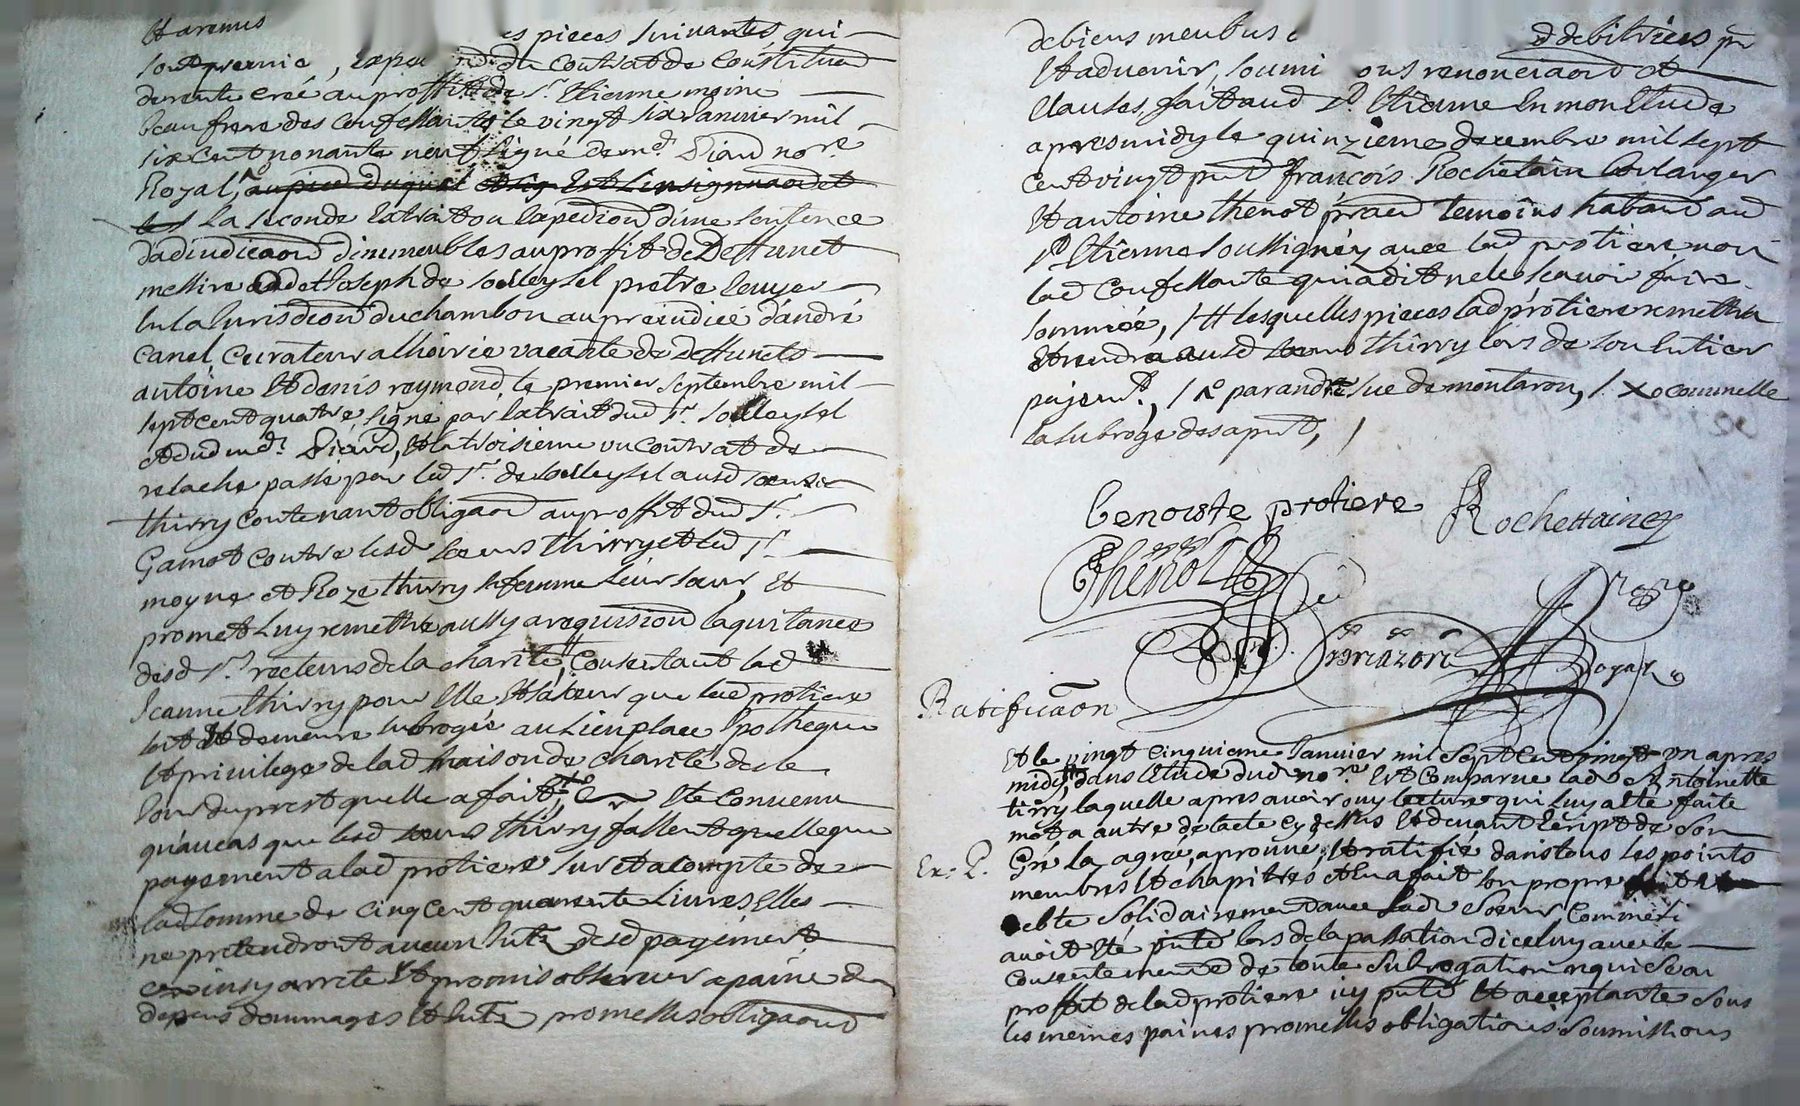 Et a remis es pieces suivantes, qui
sont premie , Expe on du Contrat de Constituaon
de rente creé au proffit de Sr. Etienne moine
beaufrere des Confessantes le vingt six Janvier mil
six cent nonante neuf signé de md. Diard nore.
Royal, au pied duquel et Est Linsignuaon et
les La seconde Extrait ou Expedion d'une sentence
dadiudicaon d'immeubles au proffit de Deffunct
messire Joseph de solleysel pretre Ecuyer
En la Jurisdion du chambon au preiudice d'andré
Canel Curateur a lhoirie vacante de Deffuncts
antoine Et denis raymond, le premier Septembre mil
sept cent quatre, signé par Extrait dud Sr. solleysel
et dud md. Diard, Et la troisieme un Contrat de
relache passé par led Sr. de solleysel ausd soeurs
thirry contenant obligaon au proffit dud Sr.
Gamot Contre lesd soeurs thirry et led Sr.
moyne et Roze thirry sa femme leur soeur, Et
promet Luy remettre aussy a requision la quitance
desd Srs. recteurs de la charité, Consentant lad
Jeanne thirry pour Elle Et sa soeur que lad protiere
soit Et demeure subrogée au Lieu place hipotheque
Et privilege de lad maison de Charité des le
Jour du prest quelle a fait, Et Convenu
qu'au cas que lesd soeurs thirry fassent quelleque
payement a lad protiere sur Et a Compte de
lad somme de Cinq Cent quarente Livres Elles
ne pretendront aucun desd payement
ainsy arreté Et promis observer a paine de
depens dommages Et promesses obligaons
de biens meubles debitrices
Et advenir, soumi ons renonciaons Et
Clauses, fait aud St. Etienne En mon Etude
apres midy le quinzieme decembre mil sept
Cent vingt pnt françois Rochetain boulanger
Et antoine thenot temoins habant aud
St Etienne soussignéz avec lad protiere non
lad Confessante qui a dit ne le scavoir faire
sommée, / # lesquelles pieces lad protiere remettra
Et rendra ausd soeurs thirry lors de son Entier
payemt. / par andré sue de montaron, / X
la subroge des apnt, /
benoiste protiere Rochettain
Thenot
Royal
Ratificaon
Et le vingt Cinquieme Janvier mil sept Cent vingt un apres
midi, dans letude dud nore Est Comparue lad Antoinette
tirry laquelle apres avoir ouy lecture qui luy a Eté faite
mot a autre de lacte cy dessus Et devant Ecript de son
Ex. P. Gré la agreé, aprouvé, Et ratifié dans tous les points
membres Et chapitres et En a fait son propre fait
debte Solidairement avec lad Soeur Comme si
avoit Eté pnte lors de la passation diceluy avec le
Consentement de toute Subrogation requise au
proffit de lad protiere icy pnte Et acceptante Sous
les meimes paines promesses obligations Soumissions